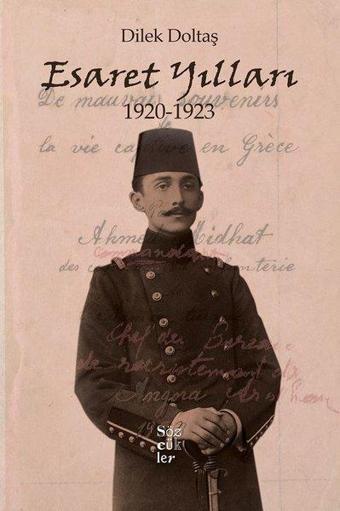 Dilek Doltaş
Esaret Yılları
De mauvais souvenirs
1920-1923
de
la vie captive en Grèce
Ahmed Midhat
Commandant
des
Chef du Bureau
de recrutement de
Angora
Söz
cük
ler